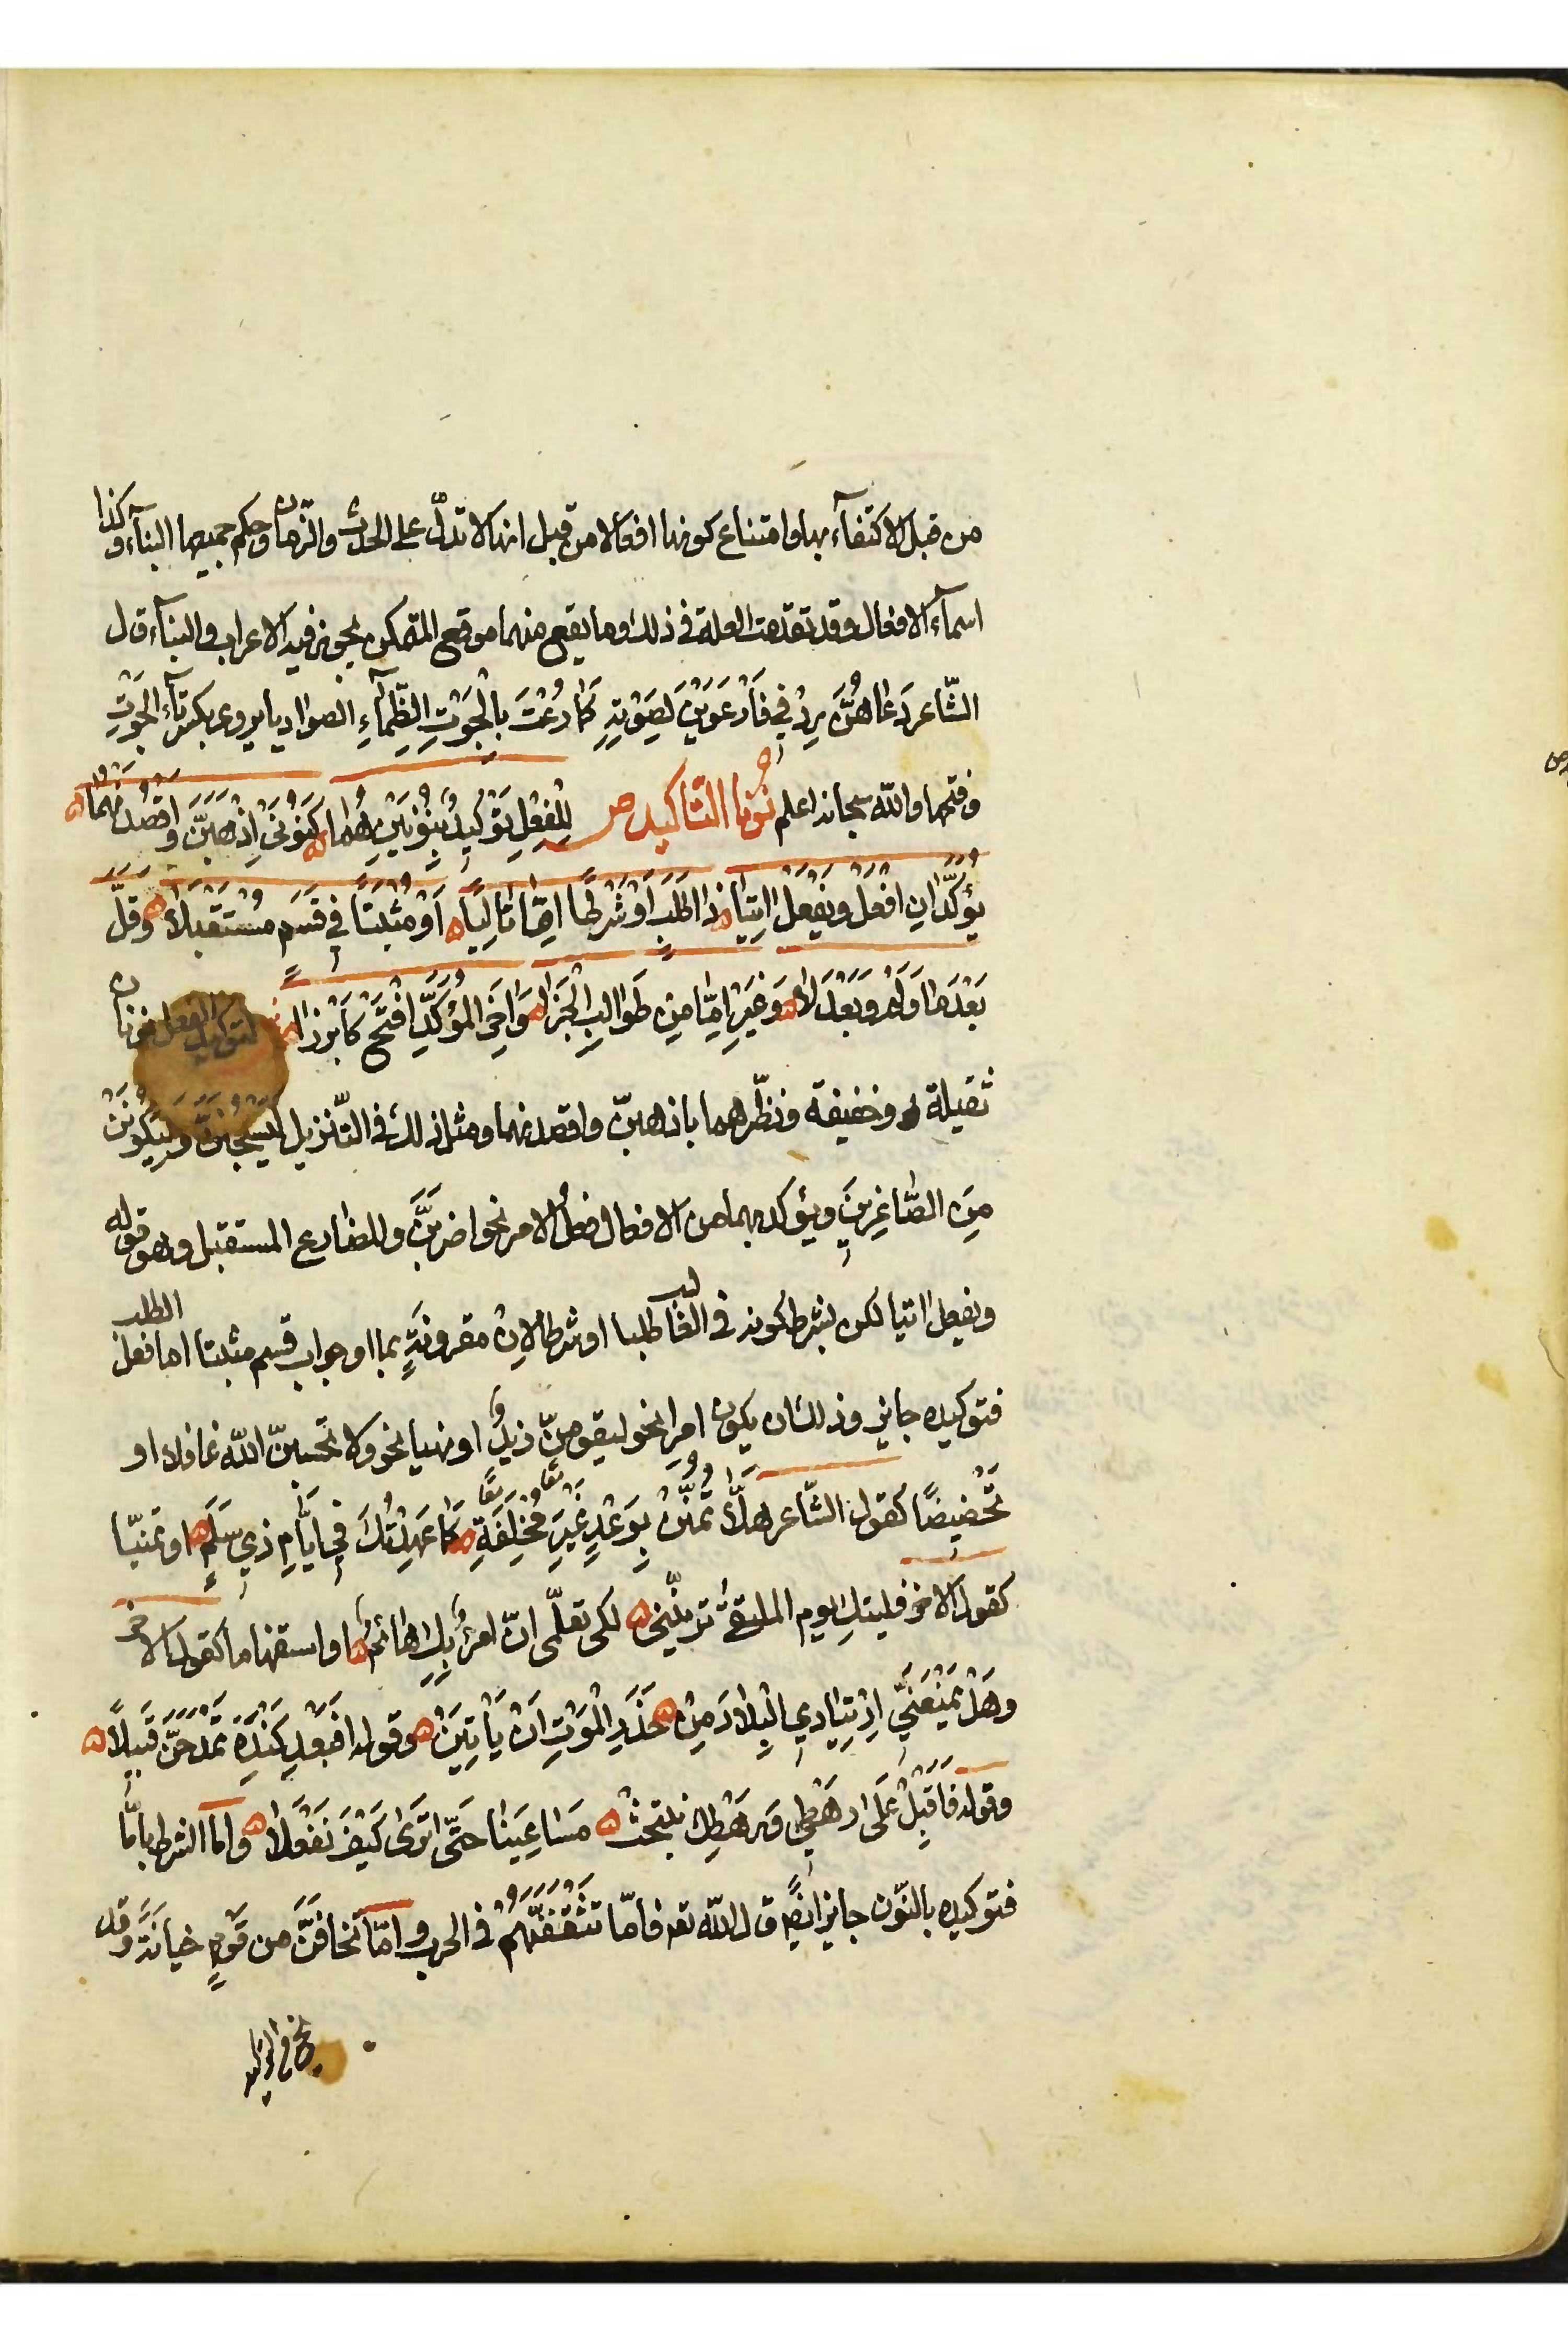 من قبل الاكتفآء بها وامتناع كونها افعالا من قبل انها لا تدلّ على الحدث والزمان وحكم جميعها البنآء وكذا
اسمآء الافعال وقد تقدمت العلة في ذلك وما يقع منهما موقع المتمكن يجوز فيه الاعراب والبنآء قال
الشّاعر دَعَاهُنَّ رِدْفِي فَارْعَوَيْنَ لِصَوْتِهِ كَمَا رُعْتَ بِالْجَوْتِ الظِّمآءِ الصواديا يروى بكسر تآء الجَوْتِ
وفتحها والله سبحانه اعلم نُونا التّاكيد ص لِلْفِعْلِ تَوْكِيدٌ بِنُونَيْنِ هُمَا ه كَنُونَيِ اِذْهَبَنَّ وَاقْصِدَنْهُمَا ه
يُؤَكِّدَانِ افْعَلْ وَيَفْعَلْ اٰتِيَا ه ذَا طَلَبٍ اَوْ شَرْطًا اِمَّا تَالِيَا ه اَوْ مُثْبَتًا فِي قَسَمٍ مُسْتَقْبَلَا ه وَقَلَّ
بَعْدَ مَا وَلَمْ وَبَعْدَ لَا ه وَغَيْرِ اِمَّا مِنْ طَوَالِبِ الْجَزَا ه وَاٰخِرَ الْمُؤَكَّدِ افْتَحْ كَابْرُزَا ه لتوكيد الفعل نونان
ثقيلة وخفيفة ونظّرهما باذهبنّ واقصدنهما ومثل ذلك في التّنزيل لَيُسْجَنَنَّ وَلَيَكُونَنْ
مِنَ الصَّاغِرِينَ ويؤكد بهما من الافعال فعلُ الامر نحو اضربَنَّ والمضارع المستقبل وهو قوله
ويفعل اٰتيا لكن بشرط كونه في الغالب طلبا او شرطا لاِنْ مقرونةٍ بما او جواب قسم مثبتا اما فعل الطلب
فتوكيده جايز وذلك ان يكون امرا نحو ليقومنّ زيدٌ او نهيا نحو ولا تحسبنّ الله غافلا او
تَحْضِيضًا كقول الشّاعر هلَّا تَمُنِّنْ بِوَعْدٍ غَيْرَ مُخْلِفَةٍ ه كَمَا عَهِدْتُكِ فِي اَيَّامِ ذِي سَلَمِ ه او تمنيّا
كقول الاخر فليتكِ يوم الملتقىٰ ترينّني ه لكى تعلمى انّ امرؤٌ بكِ هائمُ ه او استفهاما كقول الاخر
وهَلْ يَمْنَعَنِّي اِرْتِيَادِي الْبِلَادَ مِنْ ه حَذَرِ الْمَوْتِ اَنْ يَأْتِيَنْ ه وقوله افبَعْدَ كِنْدَةَ تَمْدَحَنَّ قَبِيلًا ه
وقوله فَاَقْبِلْ عَلَى رَهْطِي وَرَهْطِكَ نبتحث ه مَسَاعِيَنَا حَتَّى تَرَى كَيْفَ نَفْعَلَا ه واما الشرط باِمَّا
فتوكيده بالنّون جايز ايضًا قال الله تعه فامّا تَثْقَفَنَّهُمْ في الحرب وامّا تخافنَّ من قَوْمٍ خيانةً وقل